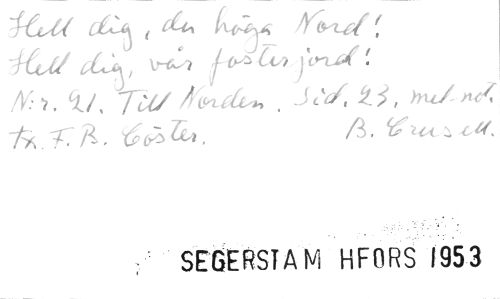 Hell dig, du höga Nord!
Hell dig, vår fosterjord!
N:r. 21. Till Norden. Sid. 23, mel-not.
tx. F. B. Cöster. B. Crusell.
SEGERSTAM HFORS 1953